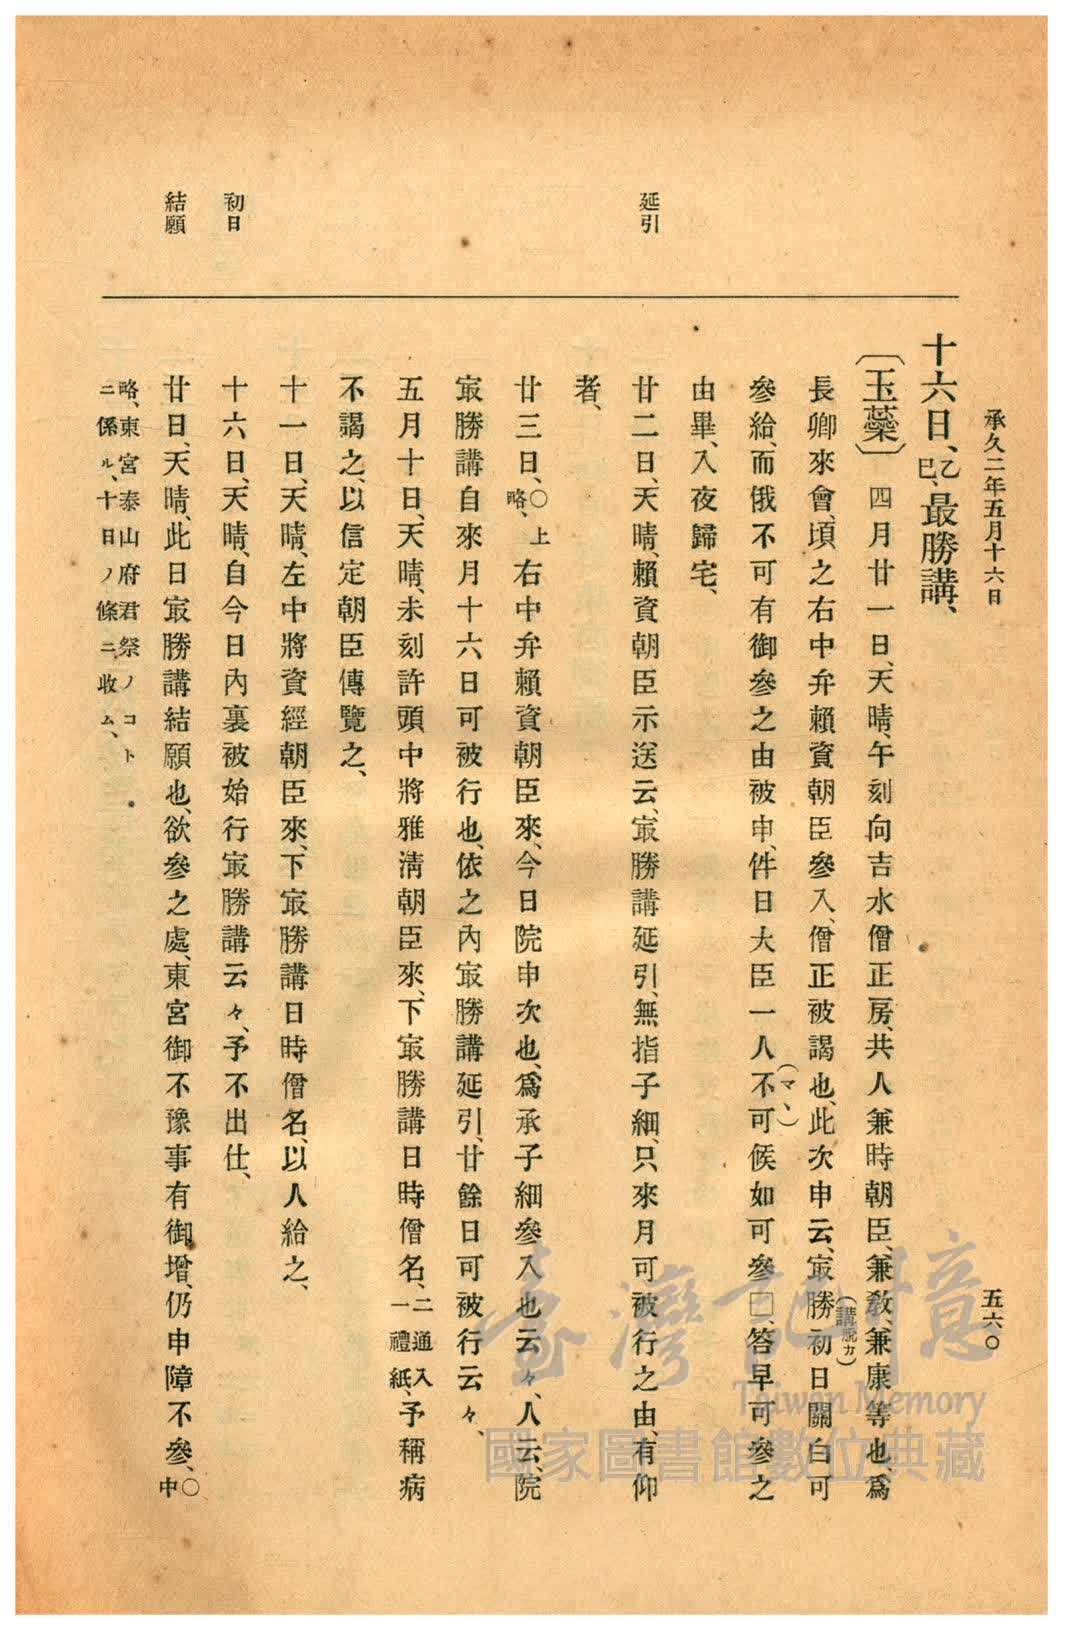 承久二年五月十六日
五六〇
十六日、乙巳、最勝講、
〔玉蘂〕四月廿一日、天晴、午刻向吉水僧正房、共人兼時朝臣、兼教、兼康等也、爲
長卿來會、頃之右中弁賴資朝臣參入、僧正被謁也、此次申云、㝡勝(講脱カ)初日關白可
參給、而俄不可有御參之由被申、件日大臣一人不(マヽ)可候如可參□、答早可參之
由畢、入夜歸宅、
延引
廿二日、天晴、賴資朝臣示送云、㝡勝講延引、無指子細、只來月可被行之由、有仰
者、
廿三日、〇上略、右中弁賴資朝臣來、今日院申次也、爲承子細參入也云々、人云、院
㝡勝講自來月十六日可被行也、依之內㝡勝講延引、廿餘日可被行云々、
五月十日、天晴、未刻許頭中將雅淸朝臣來、下㝡勝講日時僧名、二通入一禮紙、予稱病
不謁之、以信定朝臣傳覽之、
十一日、天晴、左中將資經朝臣來、下㝡勝講日時僧名、以人給之、
初日
十六日、天晴、自今日內裏被始行㝡勝講云々、予不出仕、
結願
廿日、天晴、此日㝡勝講結願也、欲參之處、東宮御不豫事有御增、仍申障不參、〇中
略、東宮泰山府君祭ノコト
ニ係ル、十日ノ條ニ收ム、
臺灣記憶
Taiwan Memory
國家圖書館數位典藏